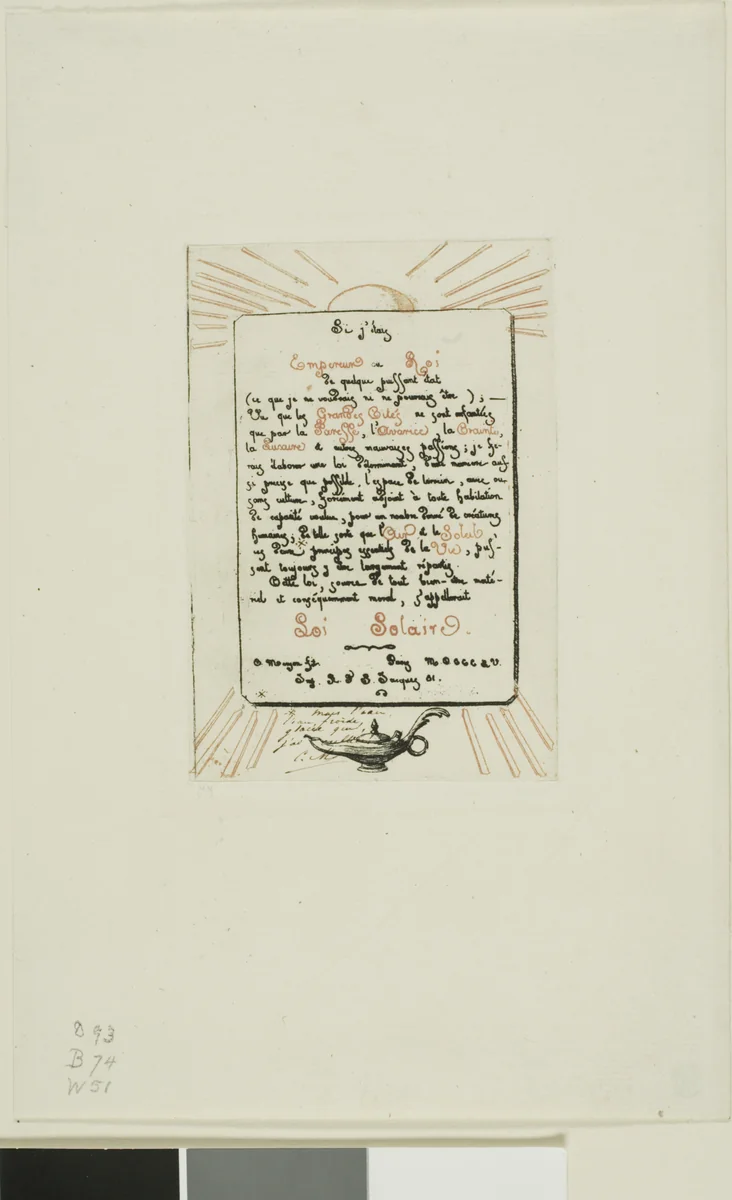 Si j'étais
Empereur ou Roi
de quelque puissant état
(ce que je ne voudrais ni ne pourrais être) ; —
Vu que les Grandes Cités ne sont enfantées
que par la Paresse, l'Avarice, la Crainte,
la Luxure & autres mauvaises passions ; je fe-
rais élaborer une loi déterminant, d'une manière aus-
si précise que possible, l'espace de terrain, avec ou
sans culture, forcément adjoint à toute habitation
de capacité voulue, pour un nombre donné de créatures
humaines ; de telle sorte que l'Air & le Soleil,
ces deux principes essentiels de la Vie, pus-
sent toujours y être largement répartis.
Cette loi, source de tout bien-être maté-
riel et conséquemment moral, s'appellerait
Loi Solaire.
C. Meryon ft. Paris MDCCCLV.
Imp. R. N. E. S. Jacques 81.
* mais l'eau
l'eau froide,
glacée que
j'ai
C. M
D 93
B 74
W 51